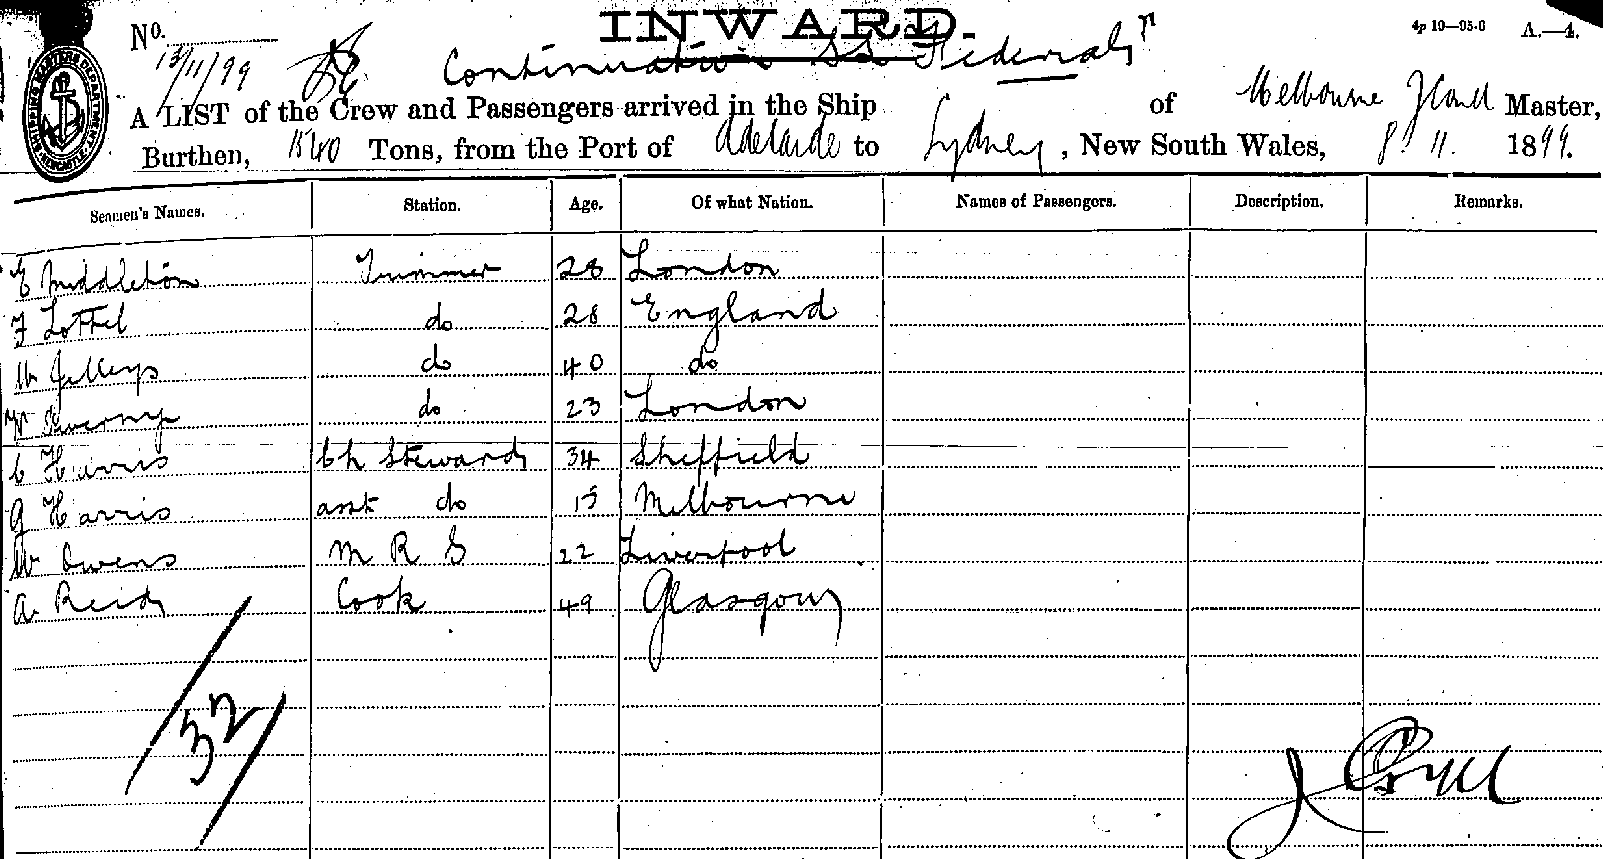 INWARD.
No. 13/11/99 Continuation SS "Federal" 4p 19—95.6 A.—4.
A LIST of the Crew and Passengers arrived in the Ship of Melbourne Master,
Burthen, 1540 Tons, from the Port of Adelaide to Sydney, New South Wales, 8 11. 1899.
Seamen's Names. Station. Age. Of what Nation. Names of Passengers. Description. Remarks.
E Middleton Trimmer 28 London
F do 28 England
W do 40 do
do 23 London
C Harris Ch Steward 34 Sheffield
G Harris asst do 15 Melbourne
W Owens M R S 22 Liverpool
A. Reid Cook 49 Glasgow
32